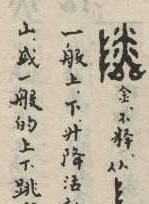 金,不释,从
一般上,下升降活
山,或一般的上下跳